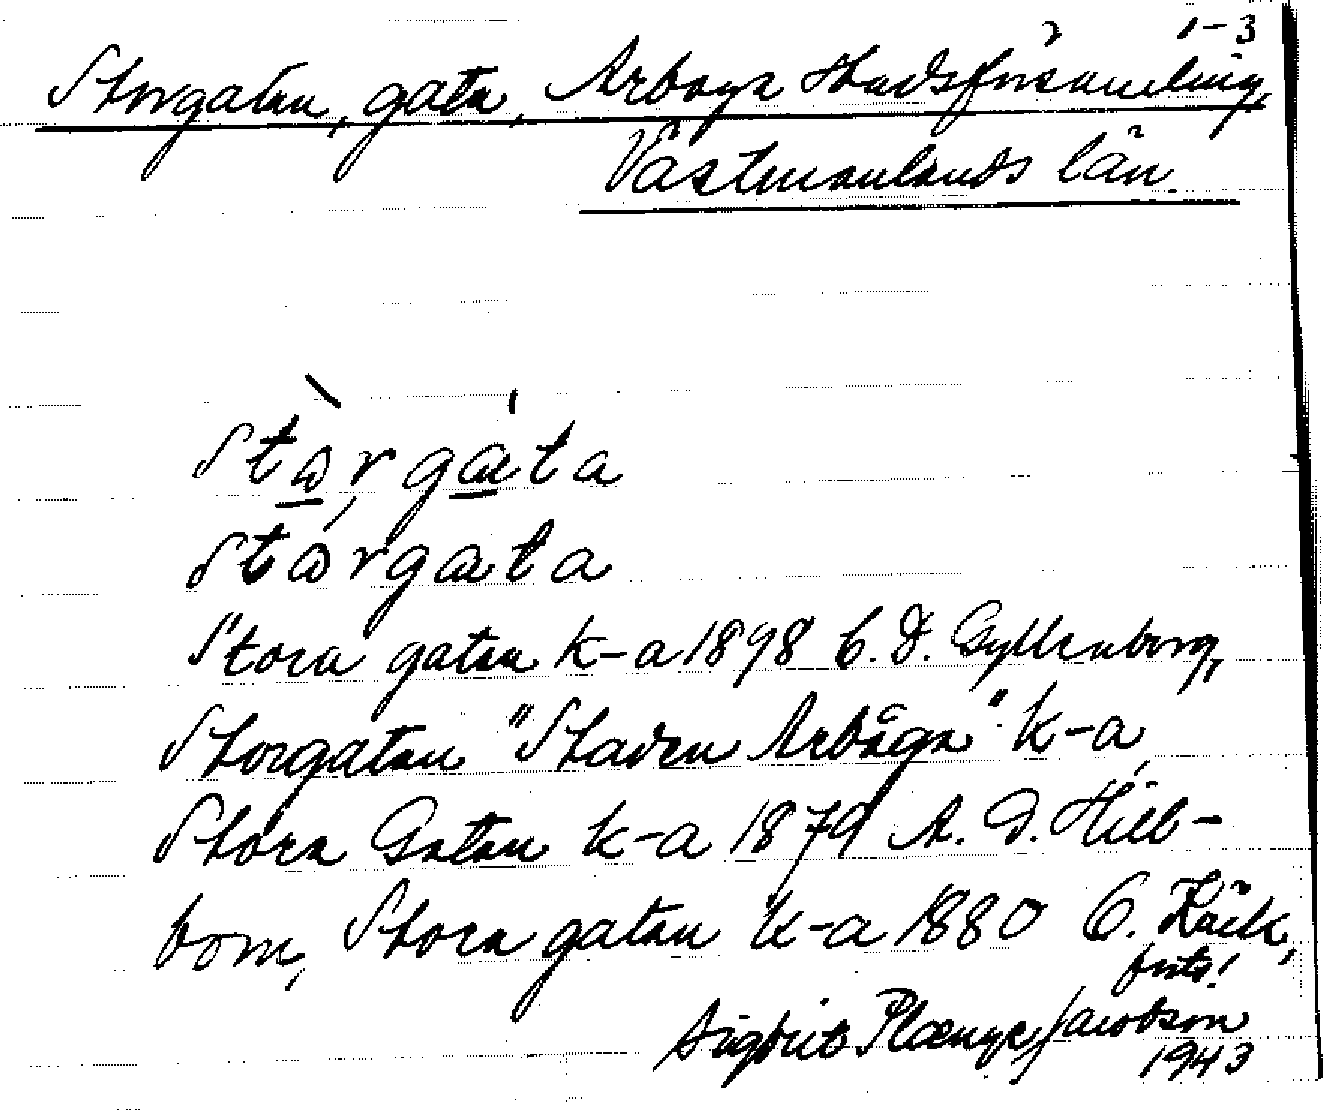 1-3
Storgatan, gata, Arboga Stadsförsamling,
Västmanlands län.
stɷ̀rgáta
stɷrgata
Stora gatan k-a 1898 C. D. Gyllenborg,
Storgatan "Staden Arbåga" k-a,
Stora Gatan k-a 1879 A. D. Hill-
bom, Stora gatan k-a 1880 C. Käck,
forts!
Sigbrit Plænge Jacobson
1943